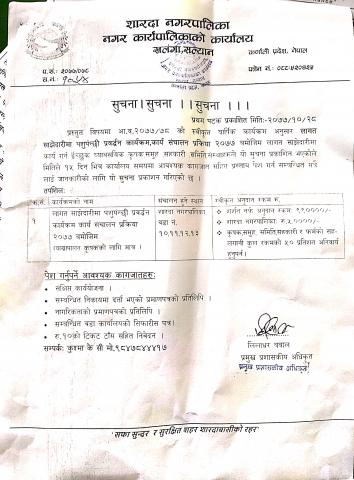 शारदा नगरपालिका
नगर कार्यपालिकाको कार्यालय
खलंगा,सल्यान
कर्णाली प्रदेश, नेपाल
प.सं.: २०७७/०७८
च.नं.:
फोन नं.: ०८८-५२०४२५
सूचना।सूचना ।।सूचना ।।।
प्रथम पटक प्रकाशित मितिः-२०७७/१०/२८
प्रस्तुत विषयमा आ.व.२०७७/७८ को स्वीकृत वार्षिक कार्यक्रम अनुसार लागत
साझेदारीमा पशुपंन्छी प्रवर्द्धन कार्यक्रम,कार्य संचालन प्रक्रिया २०७७ बमोजिम लागत साझेदारीमा
कार्य गर्न ईच्छुक व्यावसायिक कृषक समुह सहकारी समिती,संस्थाहरूले यो सूचना प्रकाशित भएकोले
मितिले १५ दिन भित्र कार्यालय समयमा आवश्यक कागजात सहित प्रस्ताव पेश गर्न सम्बन्धित सबै
लाई जानकारीको लागि यो सूचना प्रकाशन गरिएको छ ।
तपशिल:
क्र.सं. कार्यक्रमको नाम संचालन हुने स्थान स्वीकृत अनुदान रकम रू.
१ लागत साझेदारीमा पशुपंन्छी प्रवर्द्धन कार्यक्रम कार्य संचालन प्रक्रिया २०७७ बमोजिम (व्यवसायिक कृषकको लागि मात्र) शारदा नगरपालिका वडा नं. १०,११,१२,१३
शारदा नगरपालिका: रू.५००००/-
कृषक,समुह, समिति,सहकारी र फर्मको सहलागानी कुल रकमको ५० प्रतिशत अनिवार्य हुनुपर्ने।
पेश गर्नुपर्ने आवश्यक कागजातहरु:
संक्षिप्त कार्ययोजना ।
सम्बन्धित निकायमा दर्ता भएको प्रमाणपत्रको प्रतिलिपि ।
नागरिकताको प्रमाणपत्रको प्रतिलिपि ।
सम्बन्धित वडा कार्यालयको सिफारिस पत्र।
रु.१०को टिकट टाँस सहित निवेदन ।
सम्पर्क: कृष्ण के सी मो.९८४७८४४४१७
लिलाधर वली
प्रमुख प्रशासकीय अधिकृत
प्रमुख प्रशासकीय अधिकृत
"सफा सुन्दर र सुरक्षित शहर शारदाबासीको रहर"